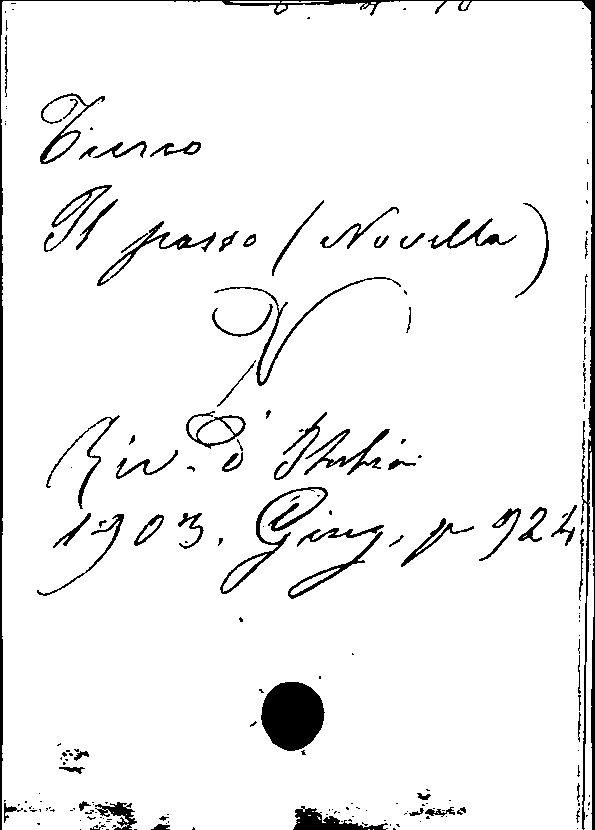 Tierco
Il passo (Novella)
N
Riv. d'Italia
1903. Giug. p 924